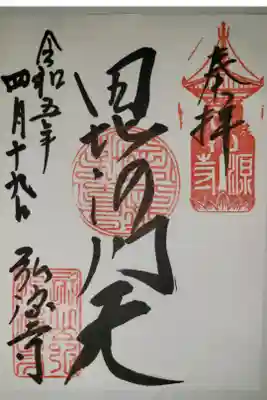 奉拝
毘沙門天
令和五年
四月十九日
弘源寺